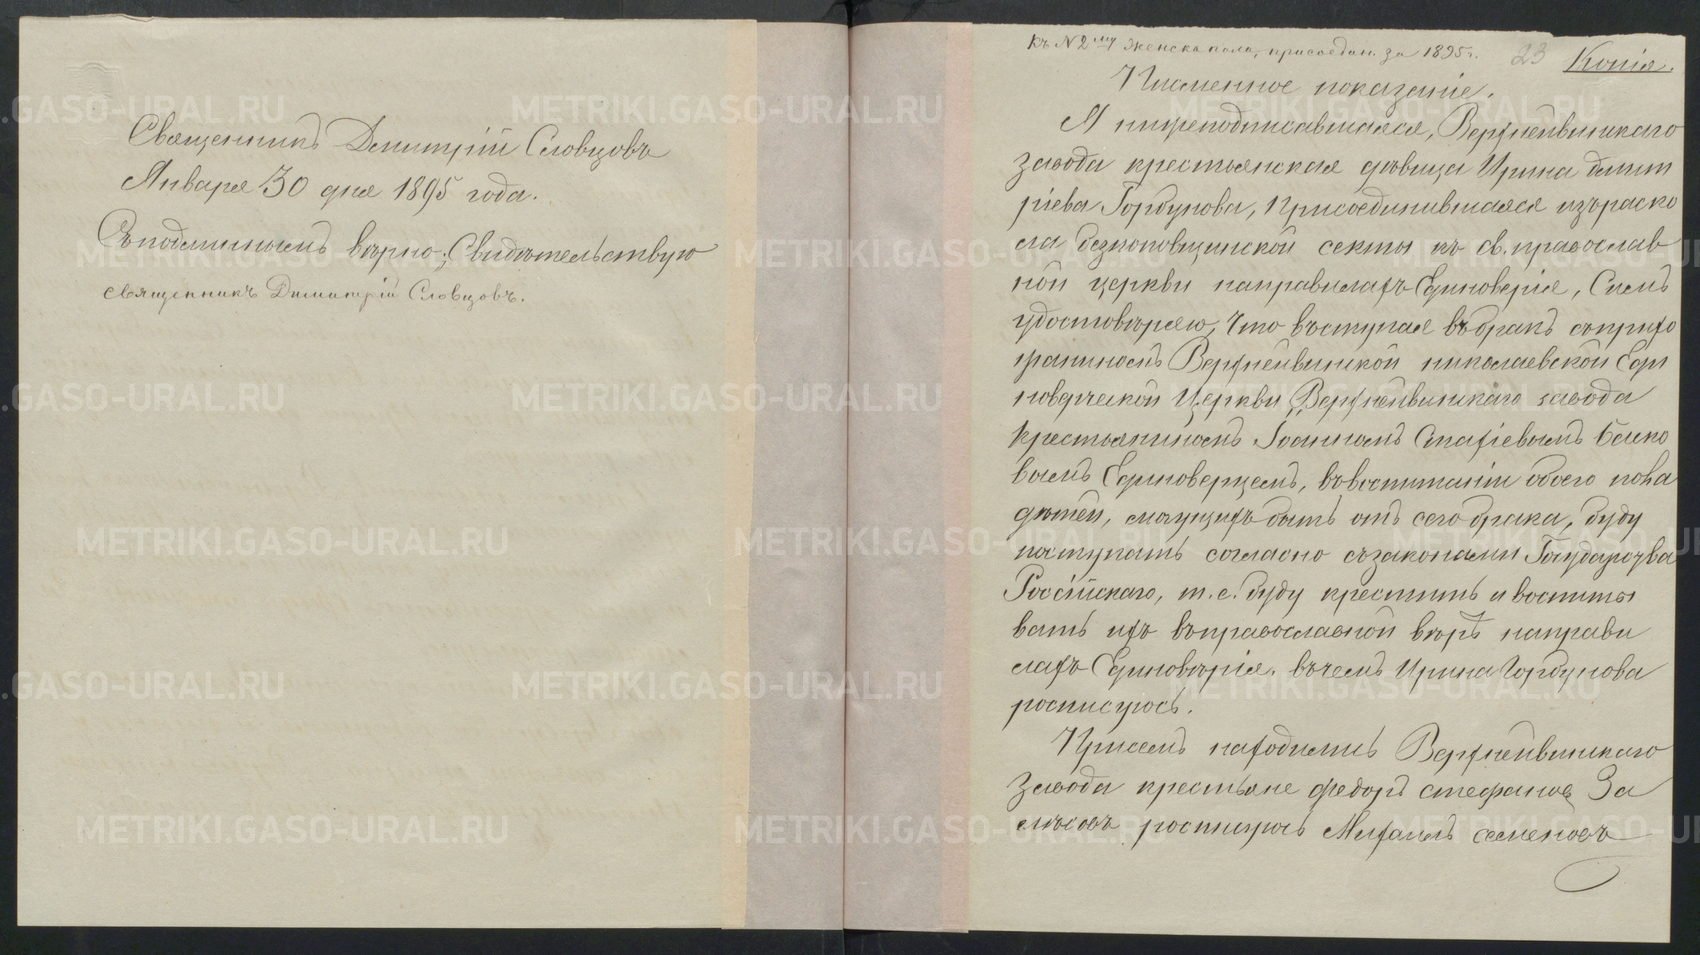 Священникъ Димитрій Словцовъ
Января 30 дня 1895 года.
Съ подлиннымъ вѣрно; Свидѣтельствую
священникъ Димитрій Словцовъ.
Къ № 2му женска пола, присоедин. за 1895 г.
23
Копія.
Писменное показаніе.
Я нижеподписавшаяся, Верхнейвинскаго
завода крестьянская дѣвица Ирина димит
ріева Горбунова, Присоединившаяся изъ раско
ла безпоповщинской секты къ св. православ
ной церкви направилахъ Единоверія, Симъ
удостовѣряю, Что вступая въ бракъ съ прихо
жаниномъ Верхнейвинской николаевской Еди
новерческой Церкви, Верхнейвинскаго завода
Крестьяниномъ Іоанномъ
вымъ Единоверцемъ, въ воспитаніи обоего пола
дѣтей, могущихъ быть отъ сего брака, буду
поступать согласно съ законами Государства
Россійскаго, т. е. буду крестить и воспиты
вать ихъ въ православной вѣрѣ направи
лахъ Единовѣрія. въ чемъ Ирина Горбунова
росписуюсь.
При семъ находились Верхнейвинскаго
завода крестьяне федоръ стефановъ За
росписуюсь Михаилъ семеновъ
METRIKI.GASO-URAL.RU